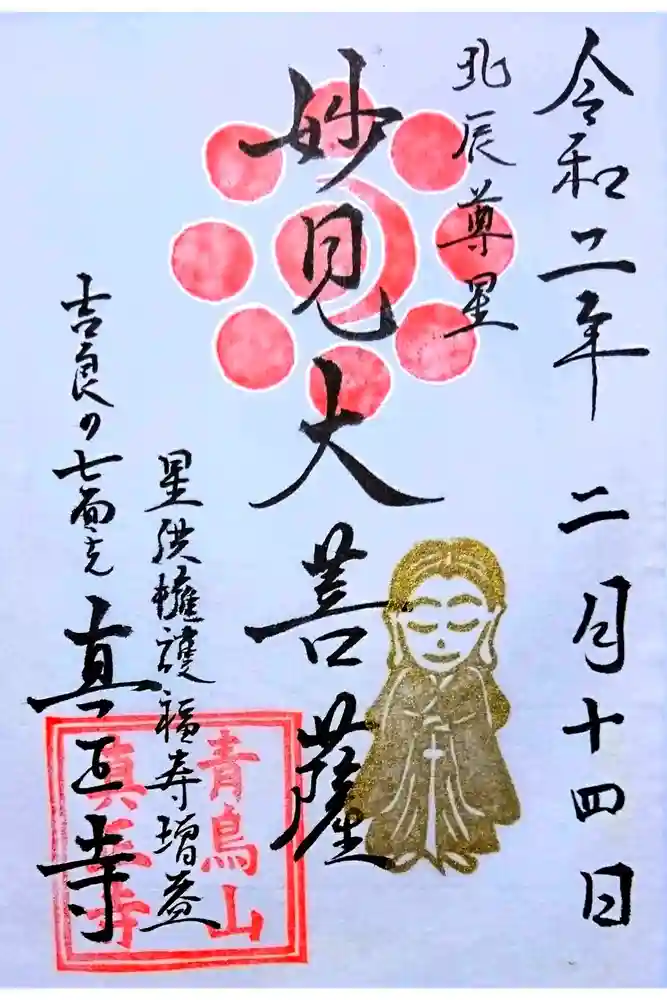 令和二年 二月十四日
北辰尊星
妙見大菩薩
星供擁護福寿増益
吉良の七面さん
真正寺
青鳥山
真正寺